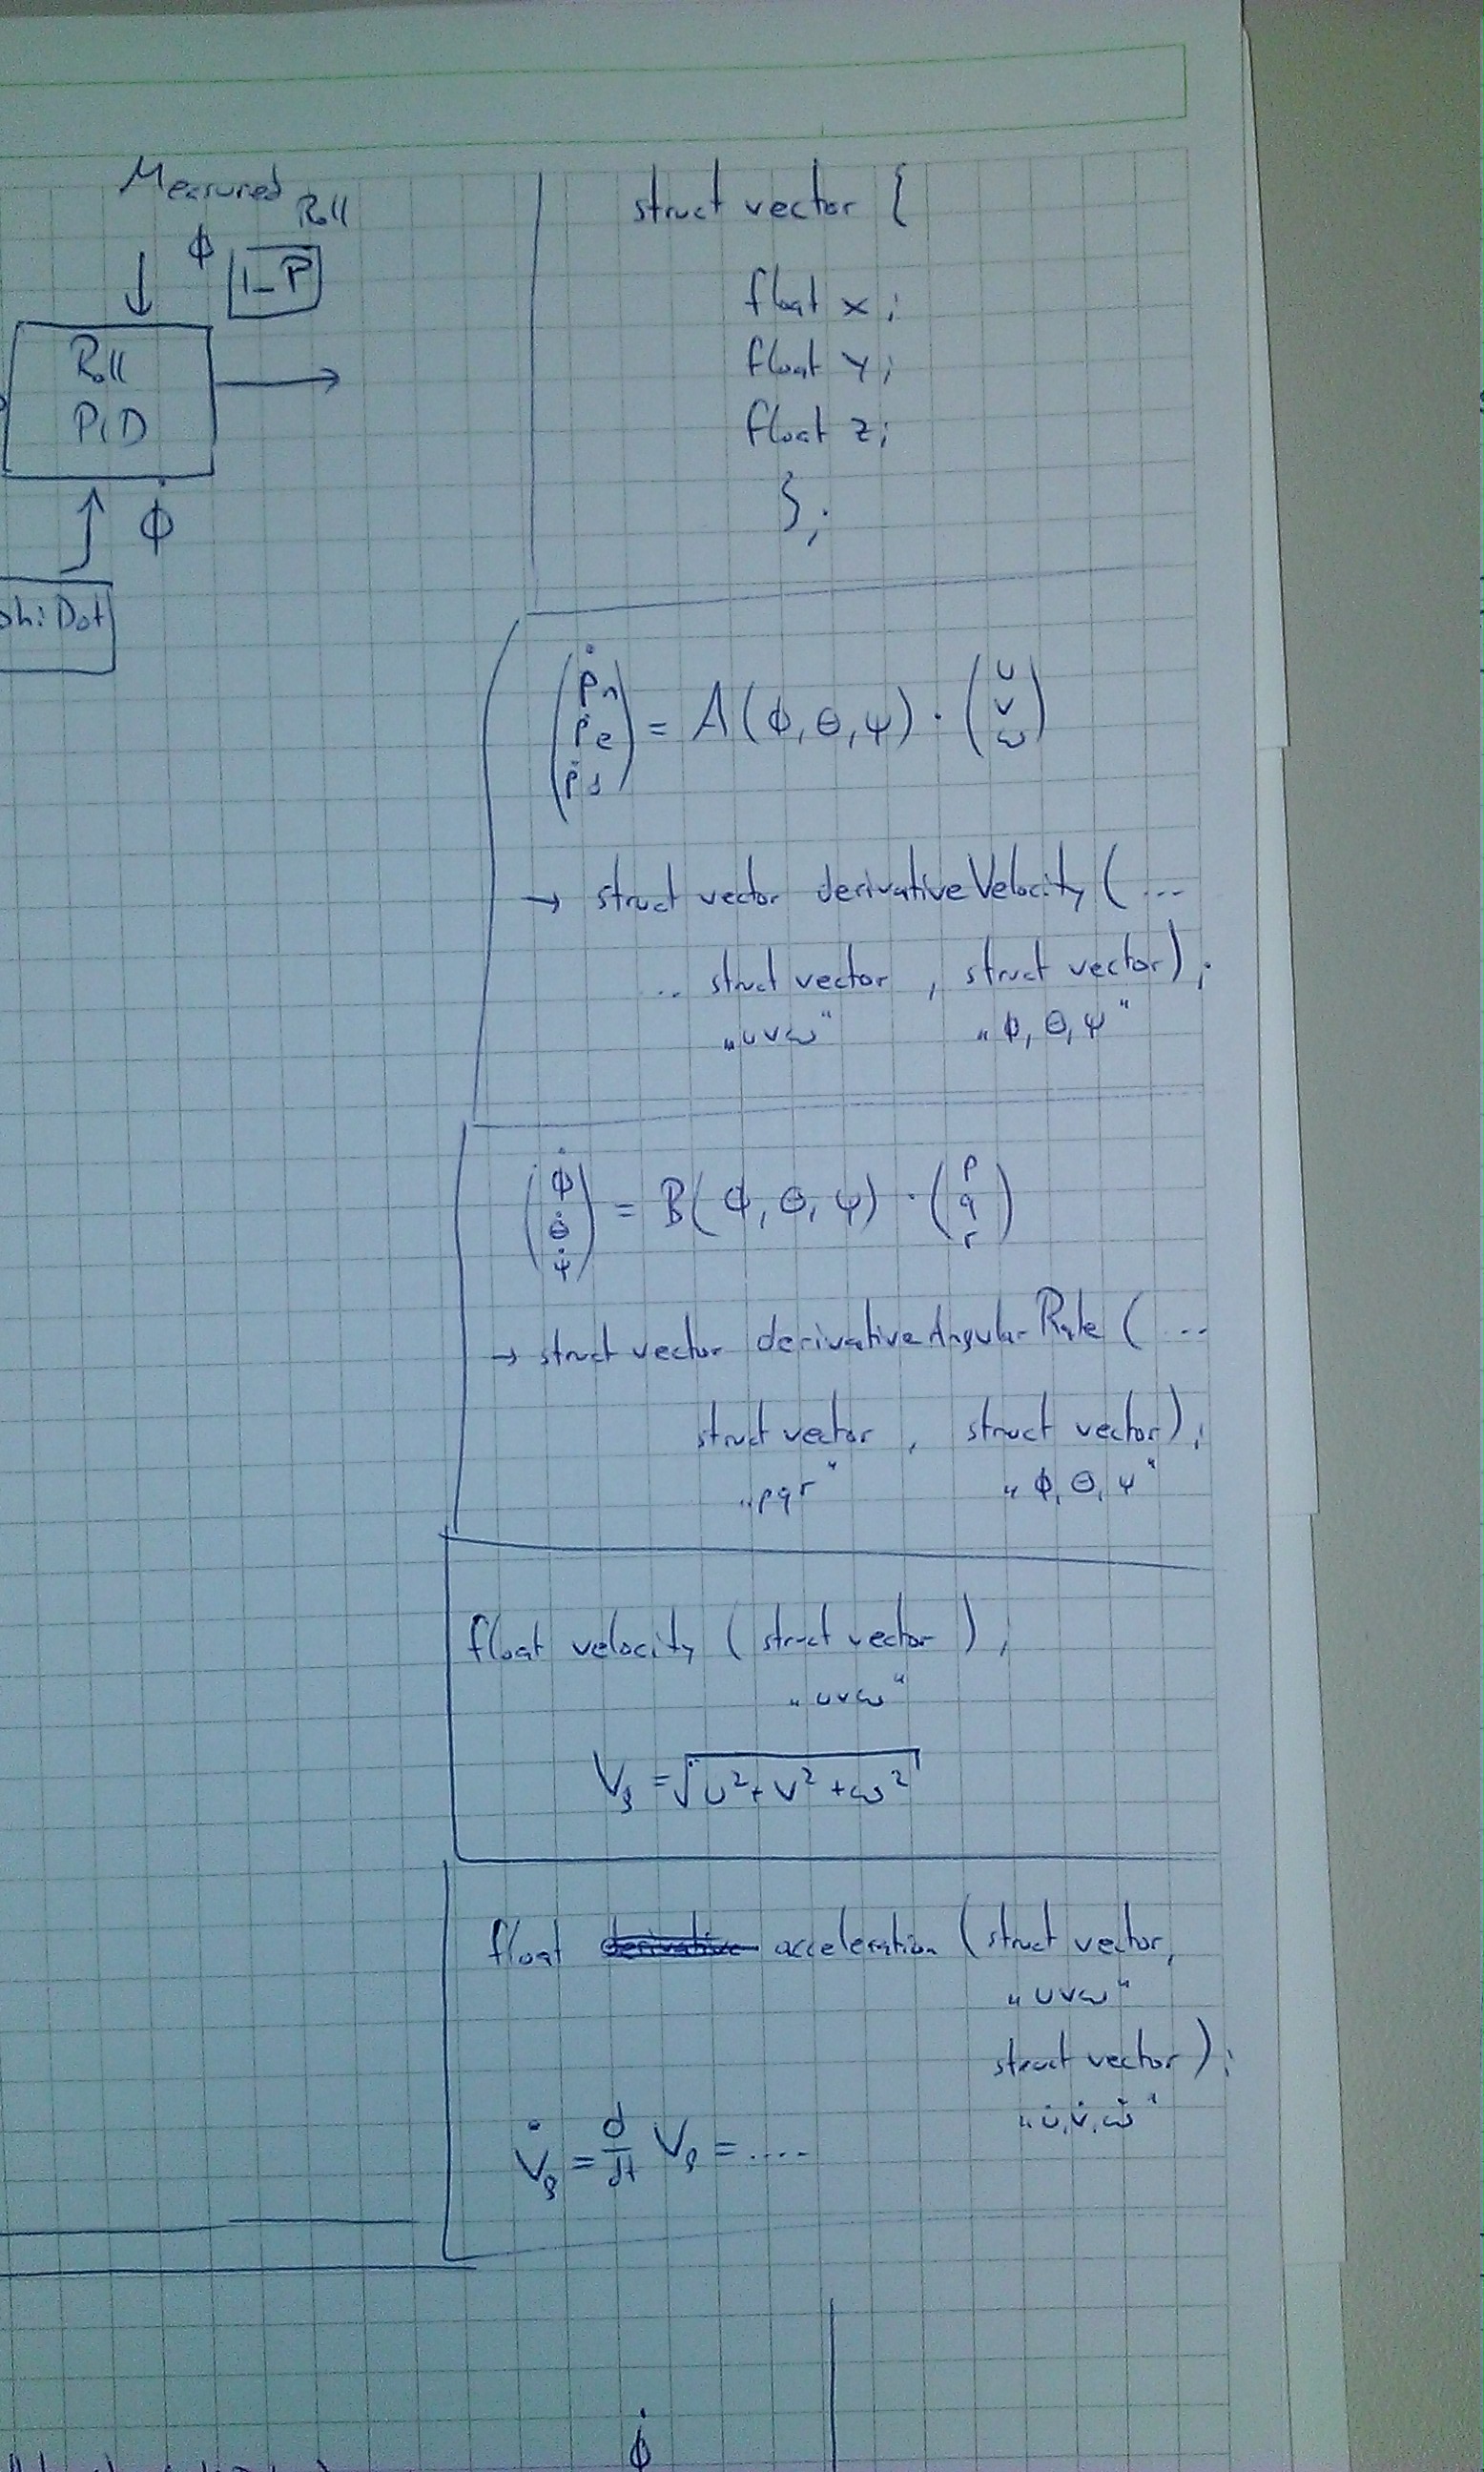 Measured
Roll
ϕ
1_P
Roll
PID
ϕ̇
phiDot
struct vector {
float x;
float y;
float z;
};
(ṗn ṗe ṗd) = A(ϕ, θ, ψ) · (u v w)
→ struct vector derivativeVelocity (...
.. struct vector , struct vector);
„uvw“ „ϕ, θ, ψ“
(ϕ̇ θ̇ ψ̇) = B(ϕ, θ, ψ) · (p q r)
→ struct vector derivativeAngularRate (...
struct vector , struct vector);
„pqr“ „ϕ, θ, ψ“
float velocity (struct vector );
„uvw“
Vg = √(u² + v² + w²)
float acceleration (struct vector,
„uvw“
struct vector);
„u̇, v̇, ẇ“
V̇g = d/dt Vg = ....
ϕ̇